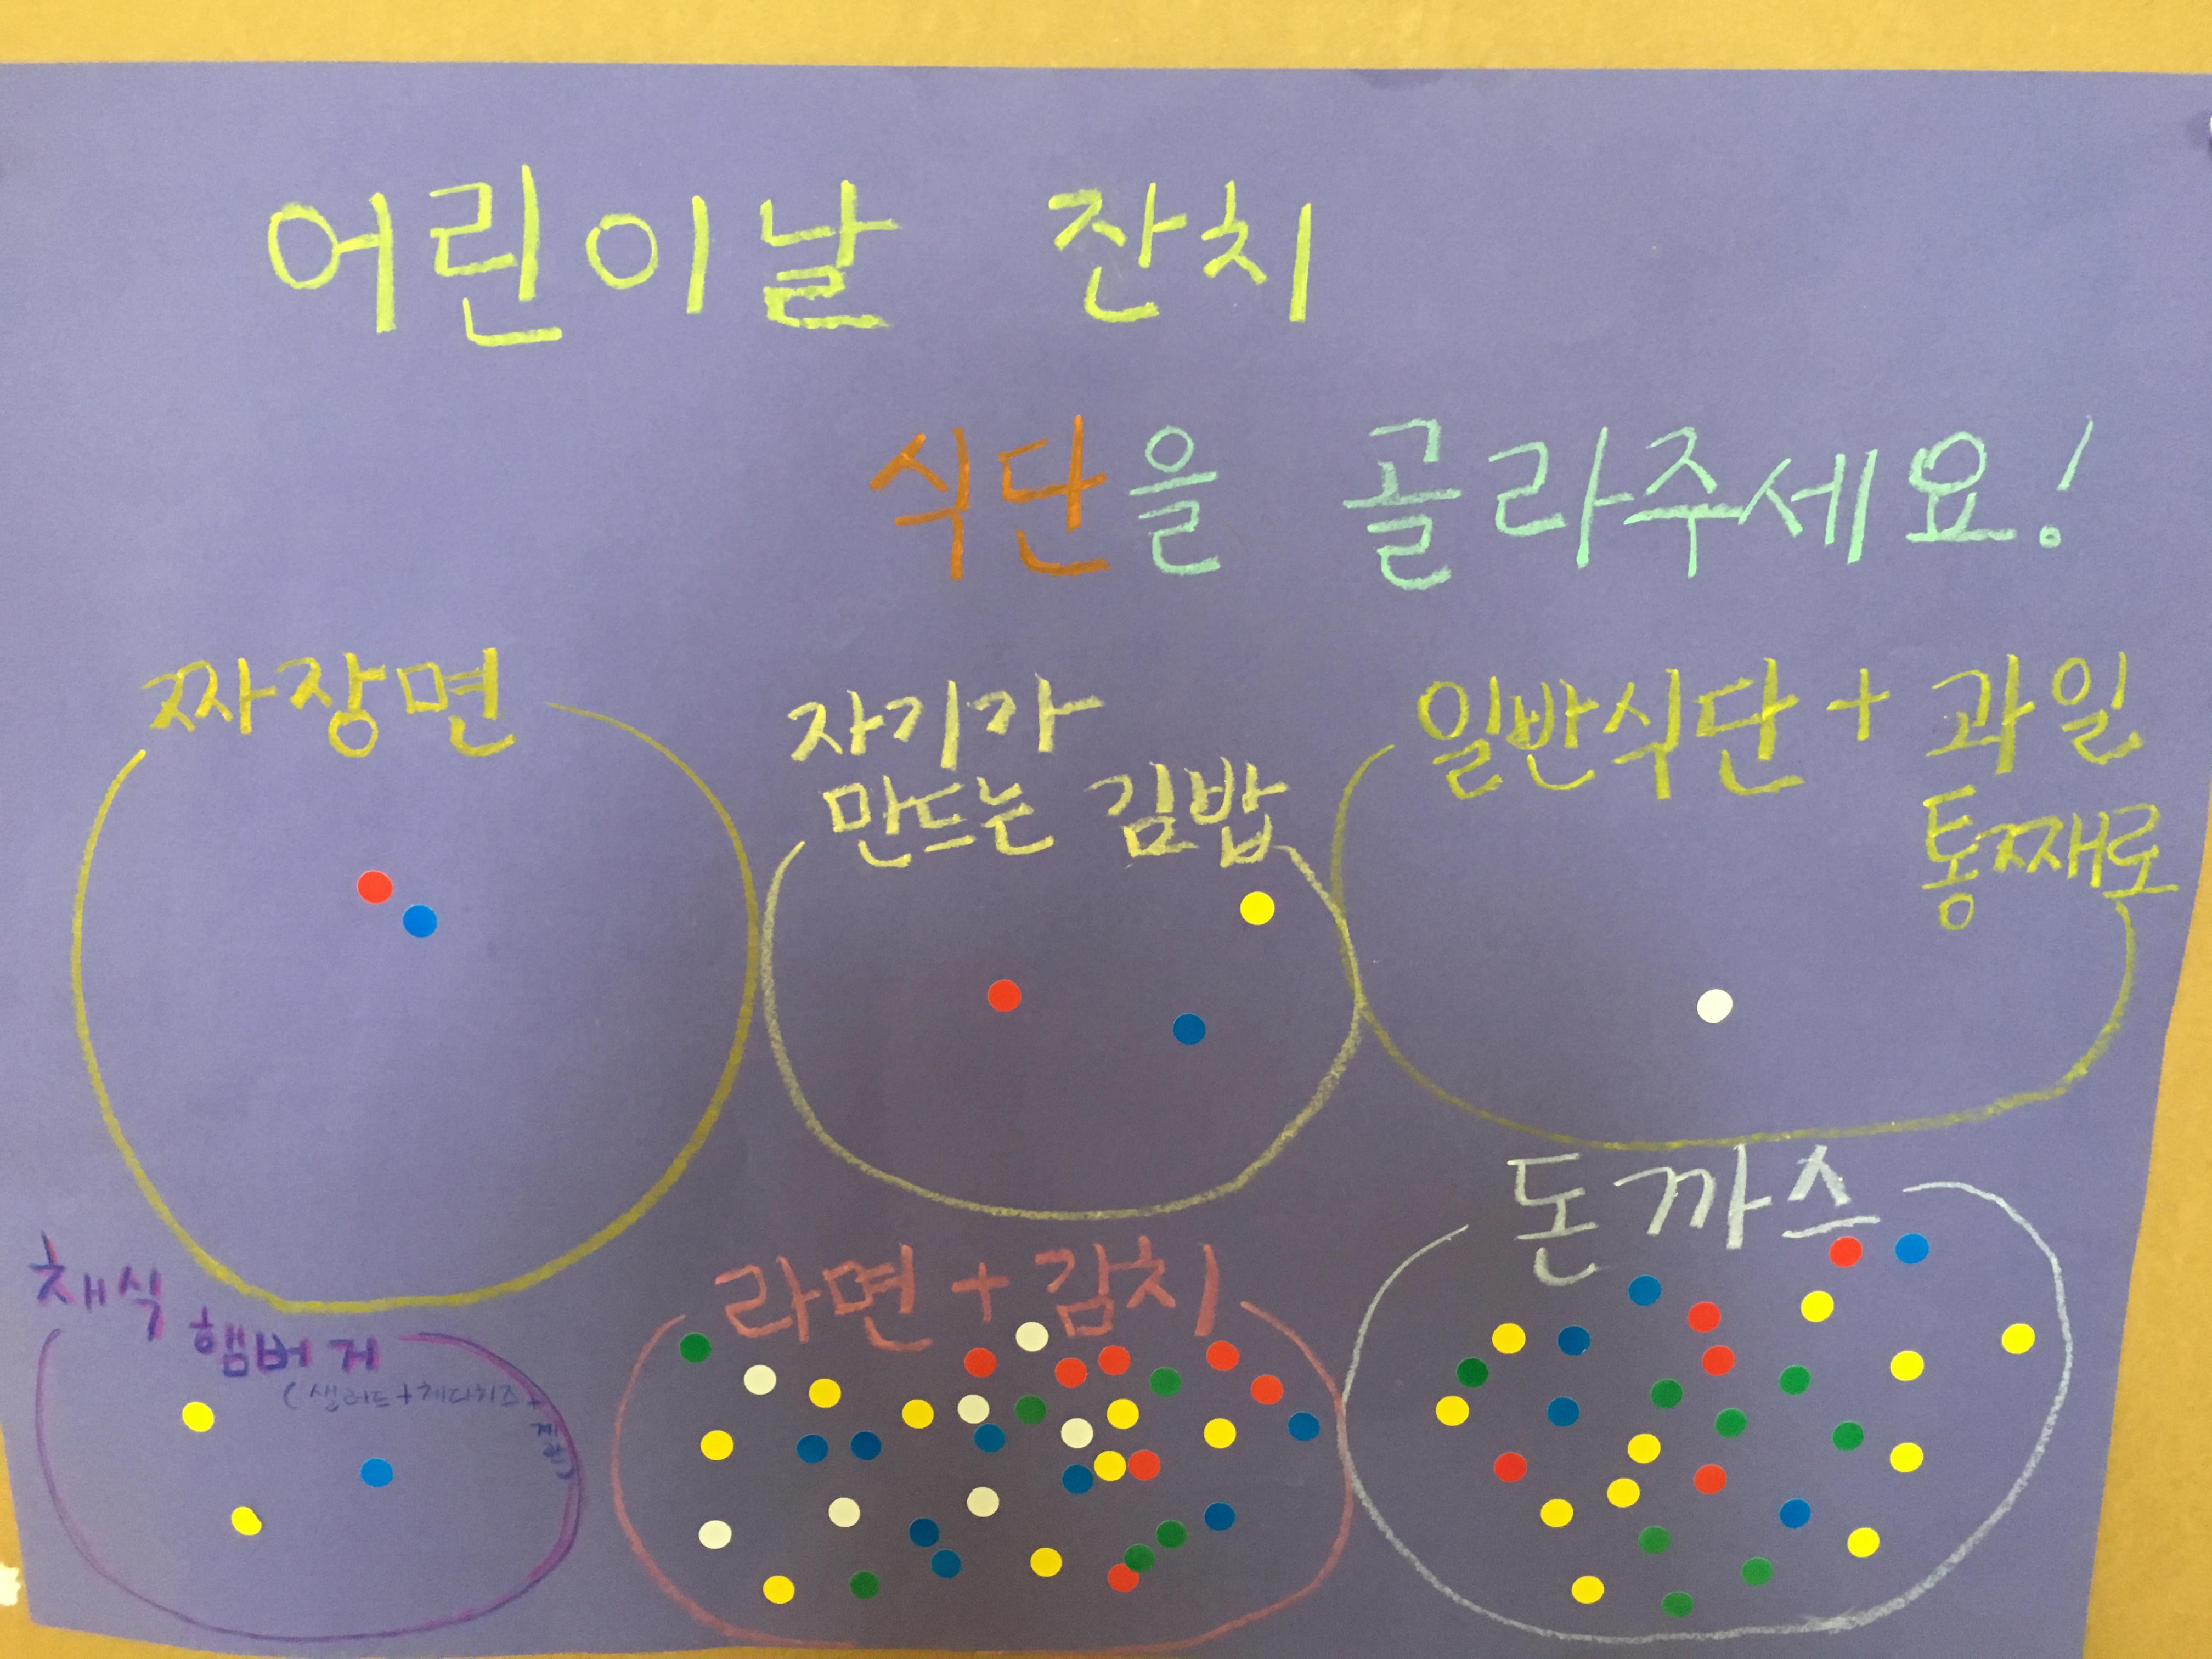 어린이날 잔치
식단을 골라주세요!
짜장면
자기가
만드는 김밥
일반식단 + 과일
통째로
채식
햄버거
(샐러드+체다치즈+
라면 + 김치
돈까스